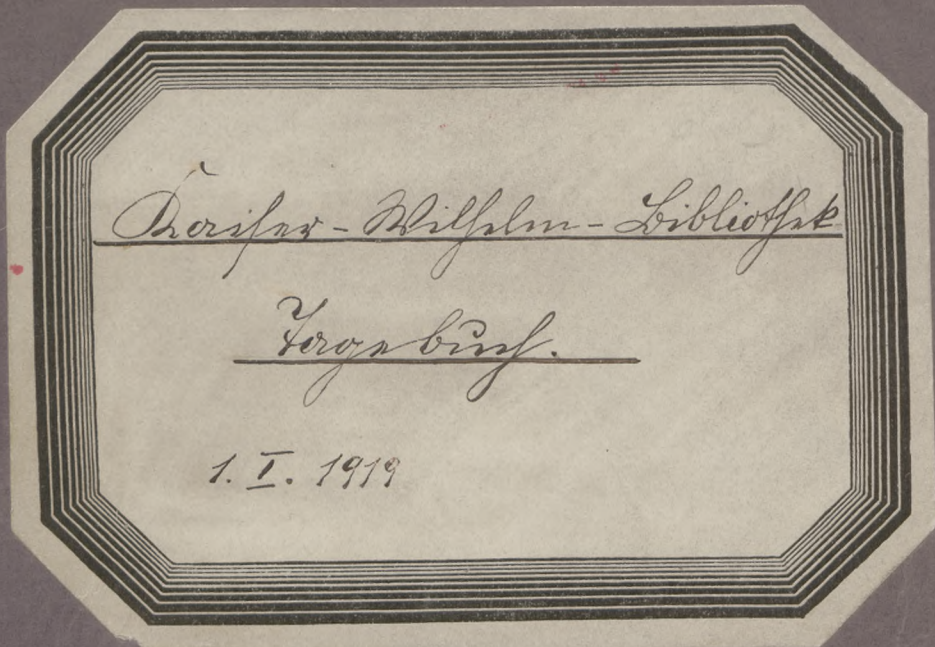 Kaiser-Wilhelm-Bibliothek
Tagebuch.
1. I. 1919